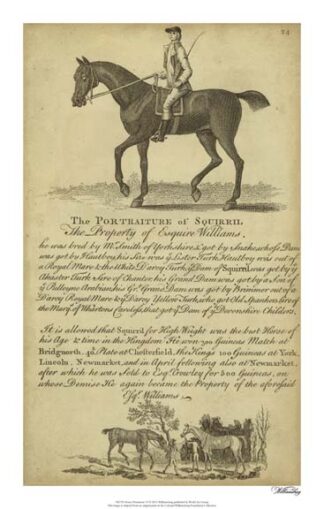 24
The PORTRAITURE of SQUIRRIL
The Property of Esquire Williams,
he was bred by Mr. Smith of Yorkshire, got by Snake, whose Dam
was got by Hautboy, his Sire was ye Lister Turk, Hautboy was out of
a Royal Mare & the White Darcy Turk, ye Dam of Squirril was got by ye
Acaster Turk, Sire of Chanter, his Grand Dam was got by a Son of
ye Pulleyne Arabian, his Gr. Grand Dam was got by Brimmer out of a
Darcy Royal Mare by Darcy Yellow Turk, who got Old Spanker, Sire of
the Marqs. of Whartons Careless, that got ye Dam of ye Devonshire Childers.
It is allowed that Squirril for High Weight was the best Horse of
his Age & time in the Kingdom. He won 700 Guineas Match at
Bridgnorth, 40£ Plate at Chesterfield, The Kings 100 Guineas at York,
Lincoln, Newmarket, and in April following also at Newmarket,
after which he was Sold to Esq. Crowley for 500 Guineas, on
whose Demise He again became the Property of the aforesaid
Esq. Williams
Williamsburg